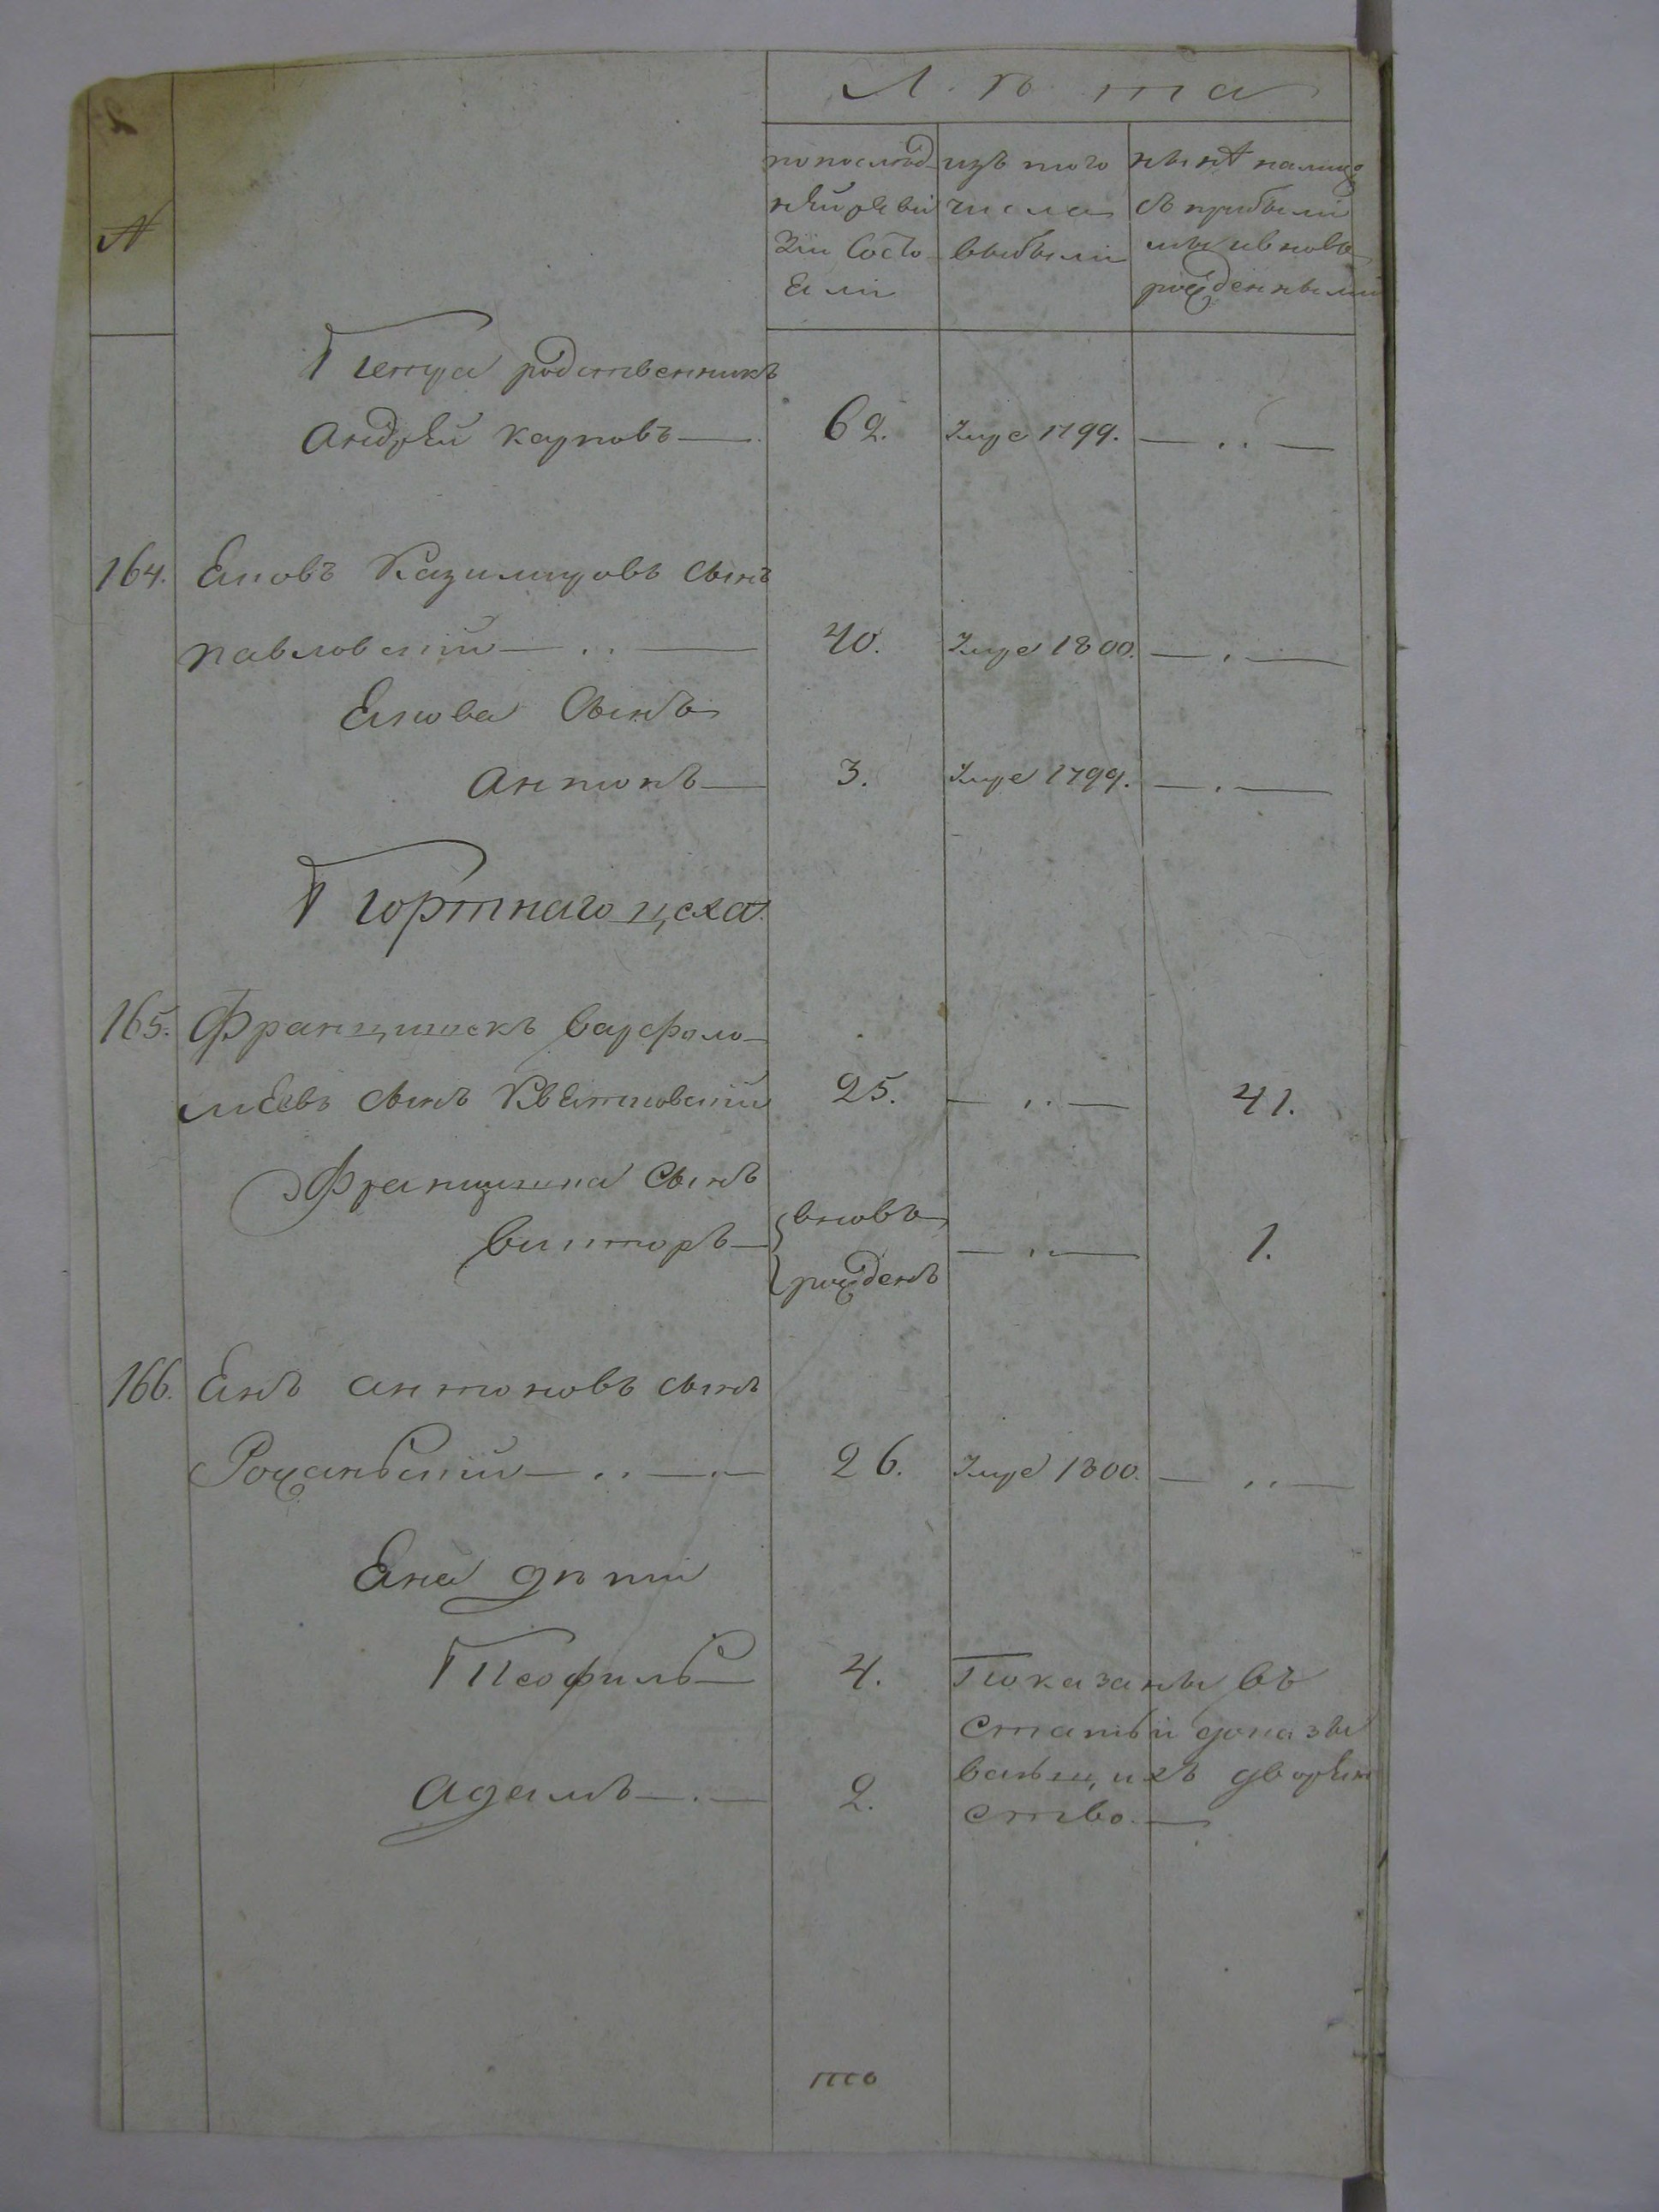 Лѣта
№
по послѣд
нѣй реви
зіи состо
яли
изъ того
числа
выбыли
нынѣ налицо
съ прибылі
мы и вновь
рожденными
Петра родственникъ
Андрей Карповъ — 62. Умре 1799. — .. —
164. Яковъ Казимировъ сынъ
Павловскій — .. — 40. Умре 1800. — . —
Якова сынъ
Антонъ — 3. Умре 1799. — . —
Портнаго цеха
165. Францишекъ Варфоло-
мѣевъ сынъ Квятковскій 25. — .. — 41.
Францишка сынъ
Викторъ — вновь
рожденъ — .. — 1.
166. Янъ Антоновъ сынъ
Рожанскій — .. — . — 26. Умре 1800. — .. —
Яна дѣти
Теофиль — 4. Показаны въ
статьи доказы
вающихъ дворян
ство. —
Адамъ — . — 2.